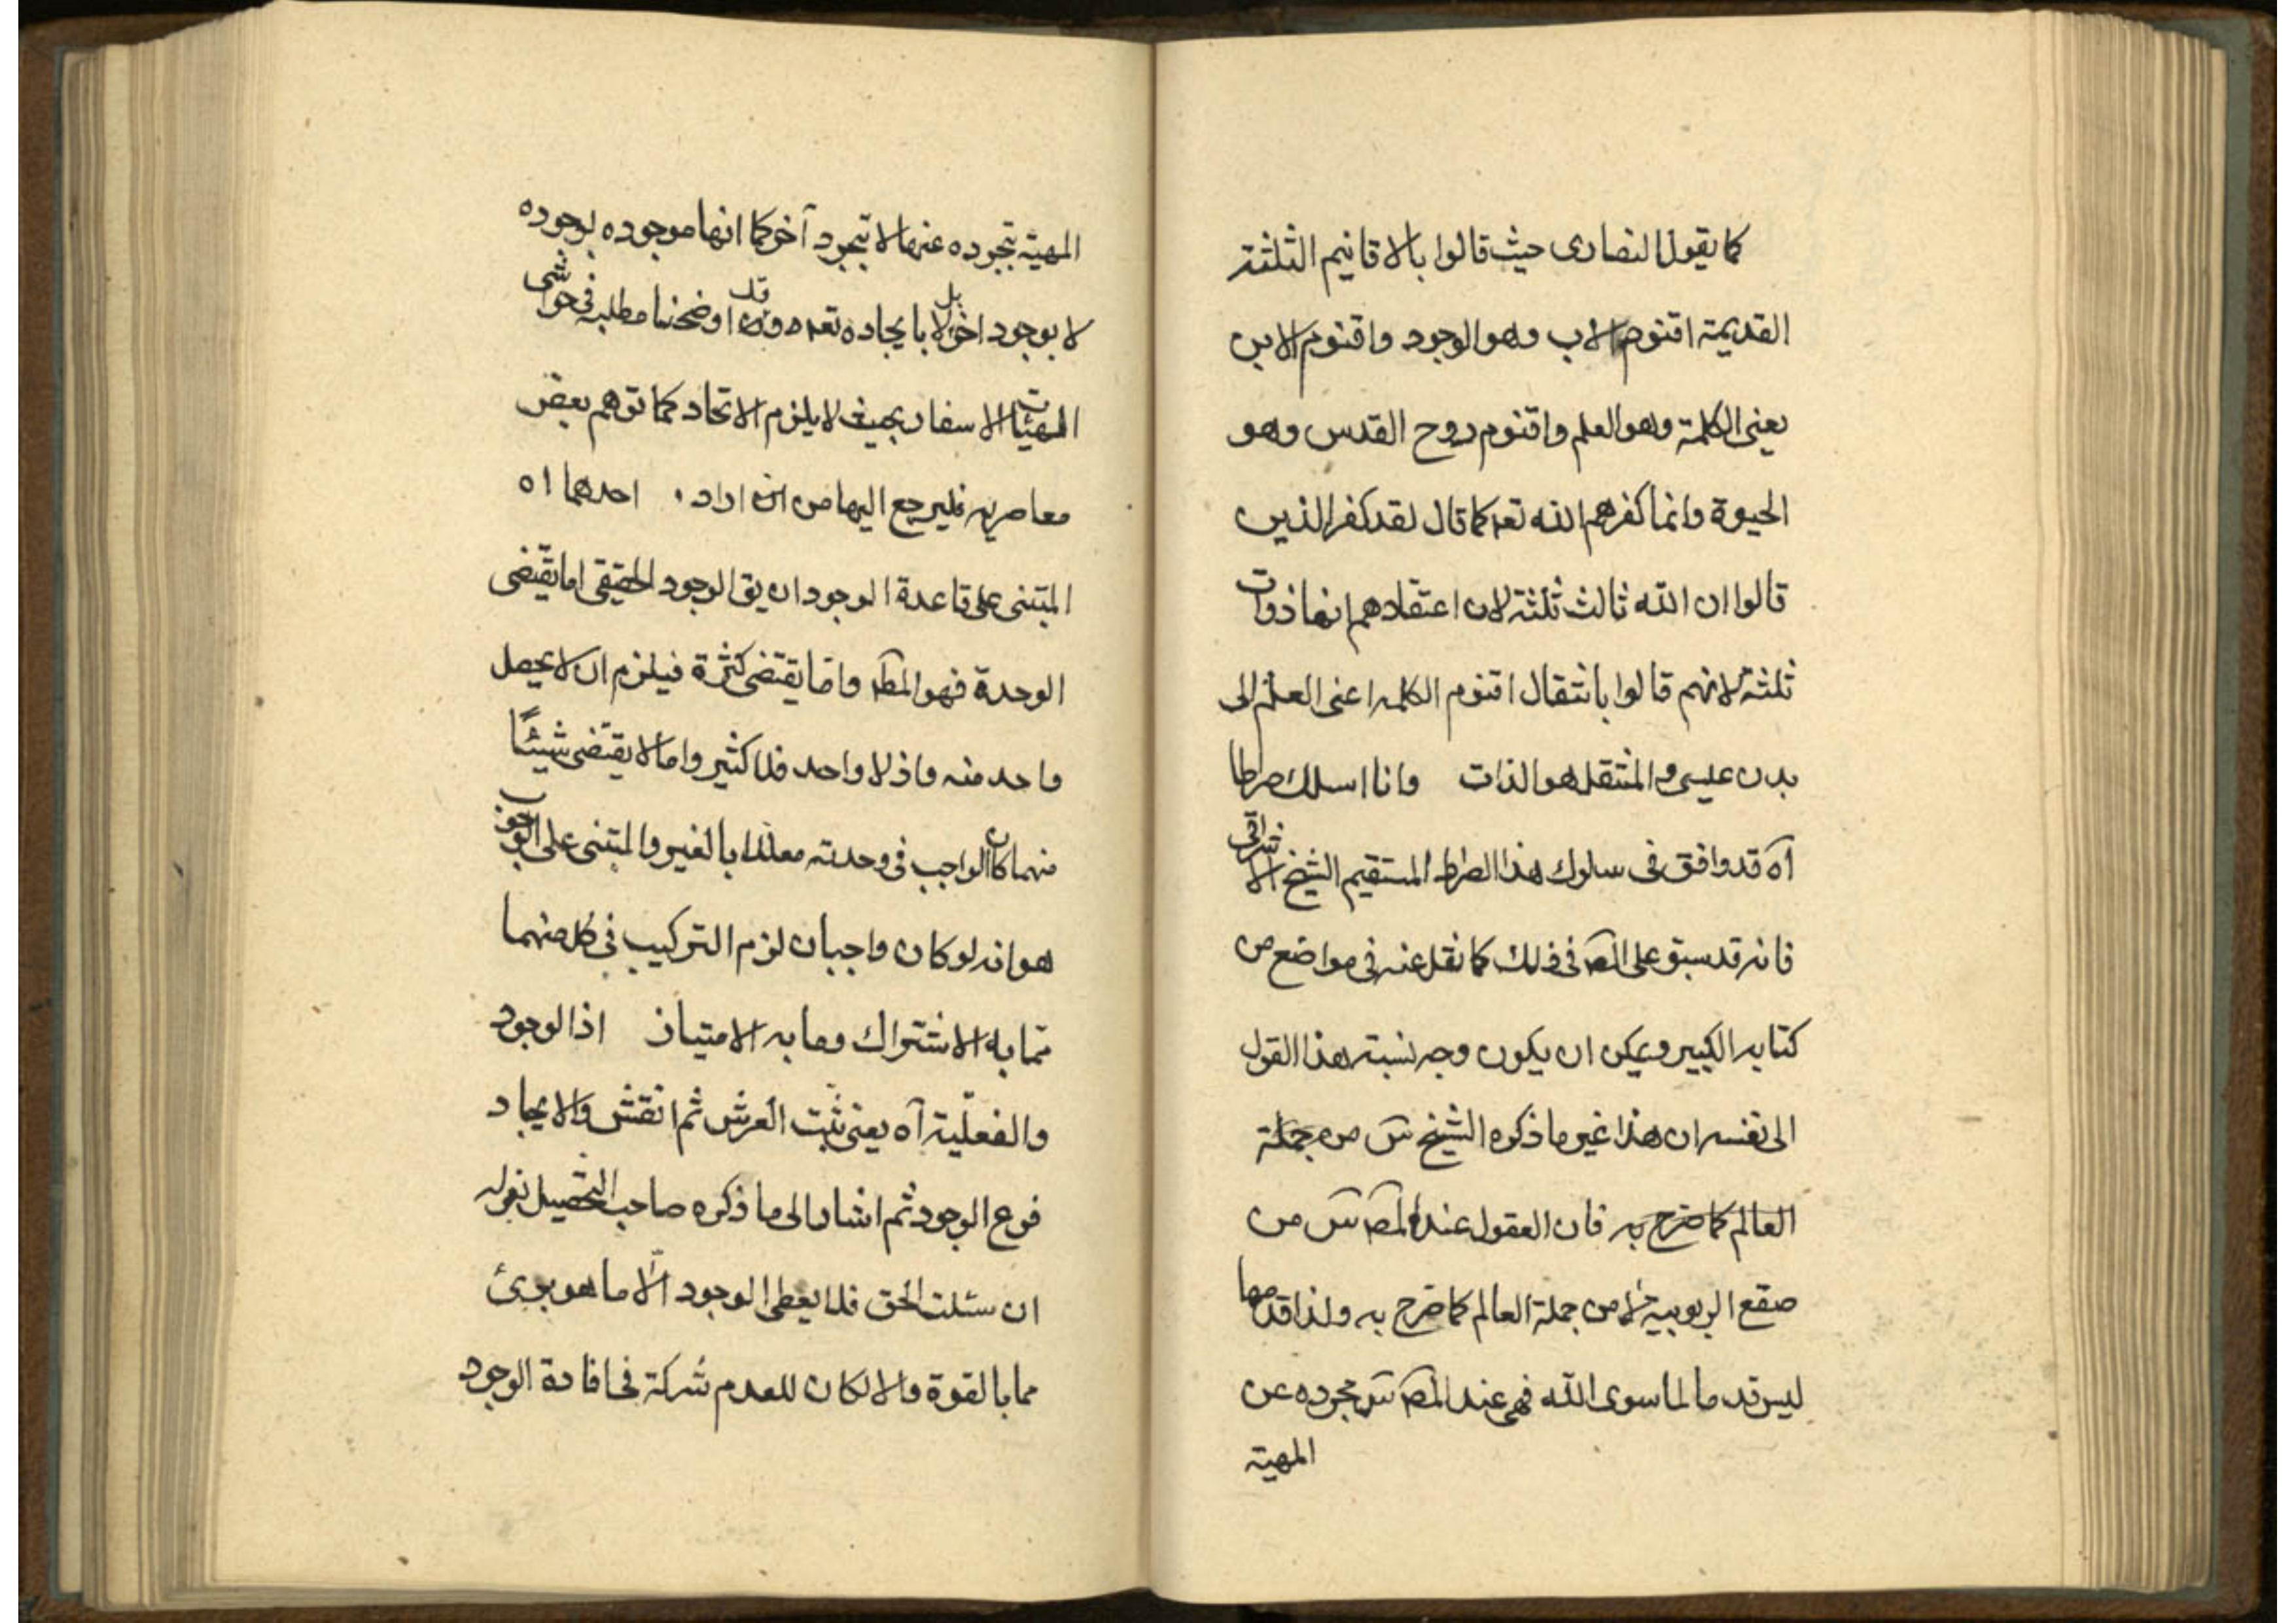 كما يقول النصارى حيث قالوا بالاقانيم الثلثة
القديمة اقنوم الاب وهو الوجود واقنوم الابن
يعنى الكلمة وهو العلم واقنوم روح القدس وهو
الحيوة وانما كفرهم الله تعه كما قال لقد كفر الذين
قالوا ان الله ثالث ثلثة لان اعتقادهم انها ذوات
ثلثة لانهم قالوا بانتقال اقنوم الكلمه اعنى العلم الى
بدن عيسى و المنتقل هو الذات وانا اسلك صراطا
آه قد وافق فى سلوك هذا الصراط المستقيم الشيخ الاشراقى
فانه قد سبق على المص فى ذلك كما نقل عنه فى مواضع من
كتابه الكبير ويمكن ان يكون وجه نسبة هذا القول
الى نفسه ان هذا غير ما ذكره الشيخ س من جملة
العالم كما صرح به فان العقول عند المص س من
صقع الربوبيه لا من جملة العالم كما صرح به ولذا قدمها
ليس قدما لما سوى الله فهى عند المص س مجرده عن
المهية
المهية بتجرده عنها لا بتجرد آخر كما انها موجوده بوجوده
لا بوجود اخر بل لا بايجاده تعه وقد اوضحنا مطلبه فى حواشى
الهيئات الاسفار بحيث لا يلزم الاتحاد كما توهم بعض
معاصريه فليرجع اليها من اراد . احدهما اه
المبتنى على قاعدة الوجود ان يق الوجود الحقيقى اما يقتضى
الوحدة فهو المط واما يقتضى كثرة فيلزم ان لا يحصل
واحد منه واذ لا واحد فلا كثير واما لا يقتضى شيئًا
منهما كان الواجب فى وحدته معللا بالغير والمبتنى على الوجوب
هو انه لو كان واجبان لزم التركيب فى كل منهما
مما به الاشتراك ومما به الامتياز اذ الوجود
والفعلية آه يعنى ثبت العرش ثم انقش والايجاد
فرع الوجود ثم اشار الى ما ذكره صاحب التحصيل بقوله
ان سئلت الحق فلا يعطى الوجود الّا ما هو برئ
مما بالقوة والا لكان للعدم شركة فى افادة الوجود